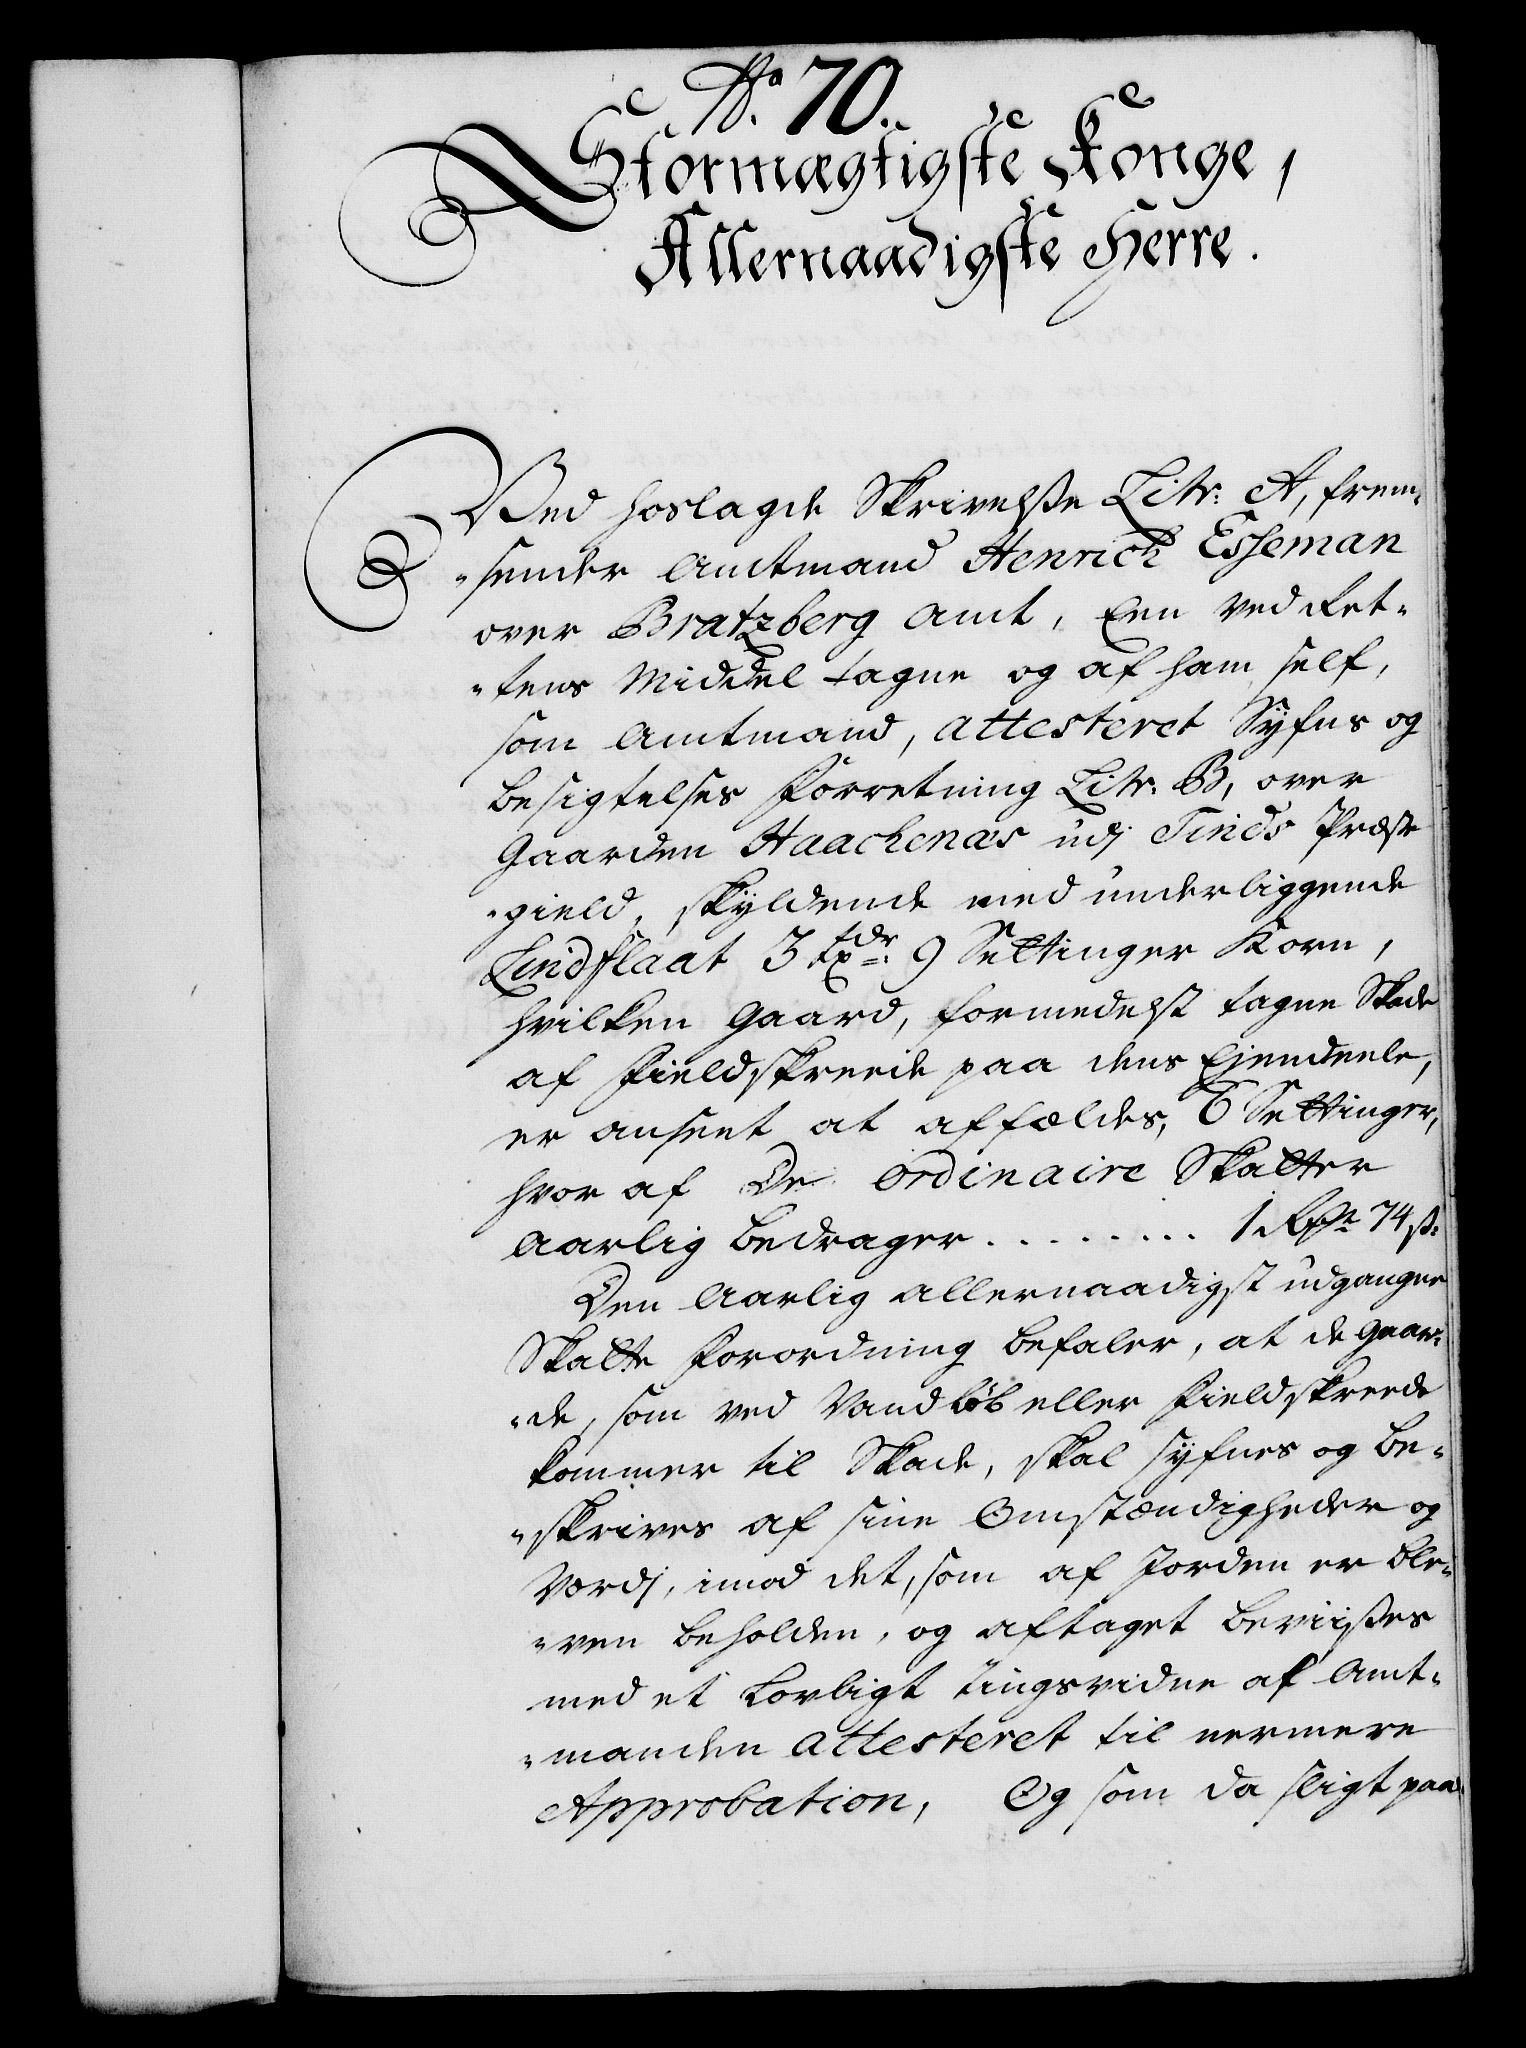 No. 70.
Stormægtigste Konge,
Allernaadigste Herre.
Ved hoslagde Skrivelse Litr: A, frem-
"sender Amtmand Henrich Esseman
over Bratzberg Amt, Een ved Ret-
"tens Middel tagne og af ham self,
som Amtmand, attesteret Syfns og
besigtelses Forretning Litr: B, over
Gaarden Haachenæs udj Tinds Præste
"gield, skyldende med underliggende
Lindflaat 3 tdr 9 Settinger Korn,
hvilken Gaard, formedelst tagne Skade
af Fieldskreede paa dens Ejendeele,
er anseet at affældes, 6 Settinger,
hvor af De ordinaire Skatter
Aarlig bedrager . . . . . . . . 1 Rdr 74 s:
Den Aarlig allernaadigst udgangne
Skatte Forordning befaler, at de Gaar-
"de, som ved Vandløb eller Fieldskreede
kommer til Skade, skal syfnes og be-
"skrives af sine Omstændigheder og
Værdj, imod det, som af Jorden er ble-
"ven beholden, og aftaget beviises
med et Lovligt tingsvidne af Amt-
"manden attesteret til nermere
Approbation, Og som da sligt paa